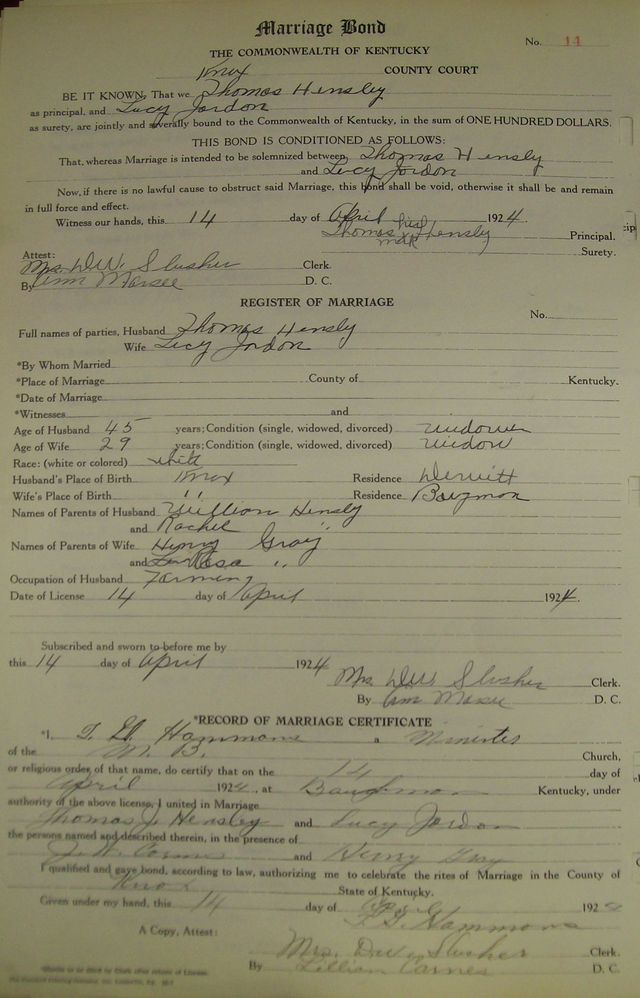 Marriage Bond
No. 11
THE COMMONWEALTH OF KENTUCKY
Knox COUNTY COURT
BE IT KNOWN, That we Thomas Hensly
as principal, and Lucy Jordon
as surety, are jointly and severally bound to the Commonwealth of Kentucky, in the sum of ONE HUNDRED DOLLARS.
THIS BOND IS CONDITIONED AS FOLLOWS:
That, whereas Marriage is intended to be solemnized between Thomas Hensly
and Lucy Jordon
Now, if there is no lawful cause to obstruct said Marriage, this bond shall be void, otherwise it shall be and remain
in full force and effect.
Witness our hands, this 14 day of April 1924.
Thomas his mark Hensly Principal.
Surety.
Attest:
Mrs. D.W. Slusher Clerk.
By Ann D. C.
REGISTER OF MARRIAGE
No.
Full names of parties, Husband Thomas Hensly
Wife Lucy Jordon
*By Whom Married
*Place of Marriage County of Kentucky.
*Date of Marriage
*Witnesses and
Age of Husband 45 years; Condition (single, widowed, divorced) widower
Age of Wife 29 years; Condition (single, widowed, divorced) widow
Race: (white or colored) white
Husband's Place of Birth Knox Residence Dewitt
Wife's Place of Birth " Residence
Names of Parents of Husband William Hensly
and Rachel "
Names of Parents of Wife Henry Gray
and Rosa "
Occupation of Husband Farming
Date of License 14 day of April 1924.
Subscribed and sworn to before me by
this 14 day of April 1924
Mrs. D.W. Slusher Clerk.
By D. C.
*RECORD OF MARRIAGE CERTIFICATE
*I, Hammons a Minister
of the M. B. Church,
or religious order of that name, do certify that on the 14 day of
April 1924, at Baughmon Kentucky, under
authority of the above license, I united in Marriage
Thomas J. Hensley and Lucy Jordon
the persons named and described therein, in the presence of
J. W. and Henry Gray
I qualified and gave bond, according to law, authorizing me to celebrate the rites of Marriage in the County of
Knox State of Kentucky.
Given under my hand, this 14 day of April 192
Hammons
A Copy, Attest:
Mrs. D.W. Slusher Clerk.
By Lillian Carnes D. C.